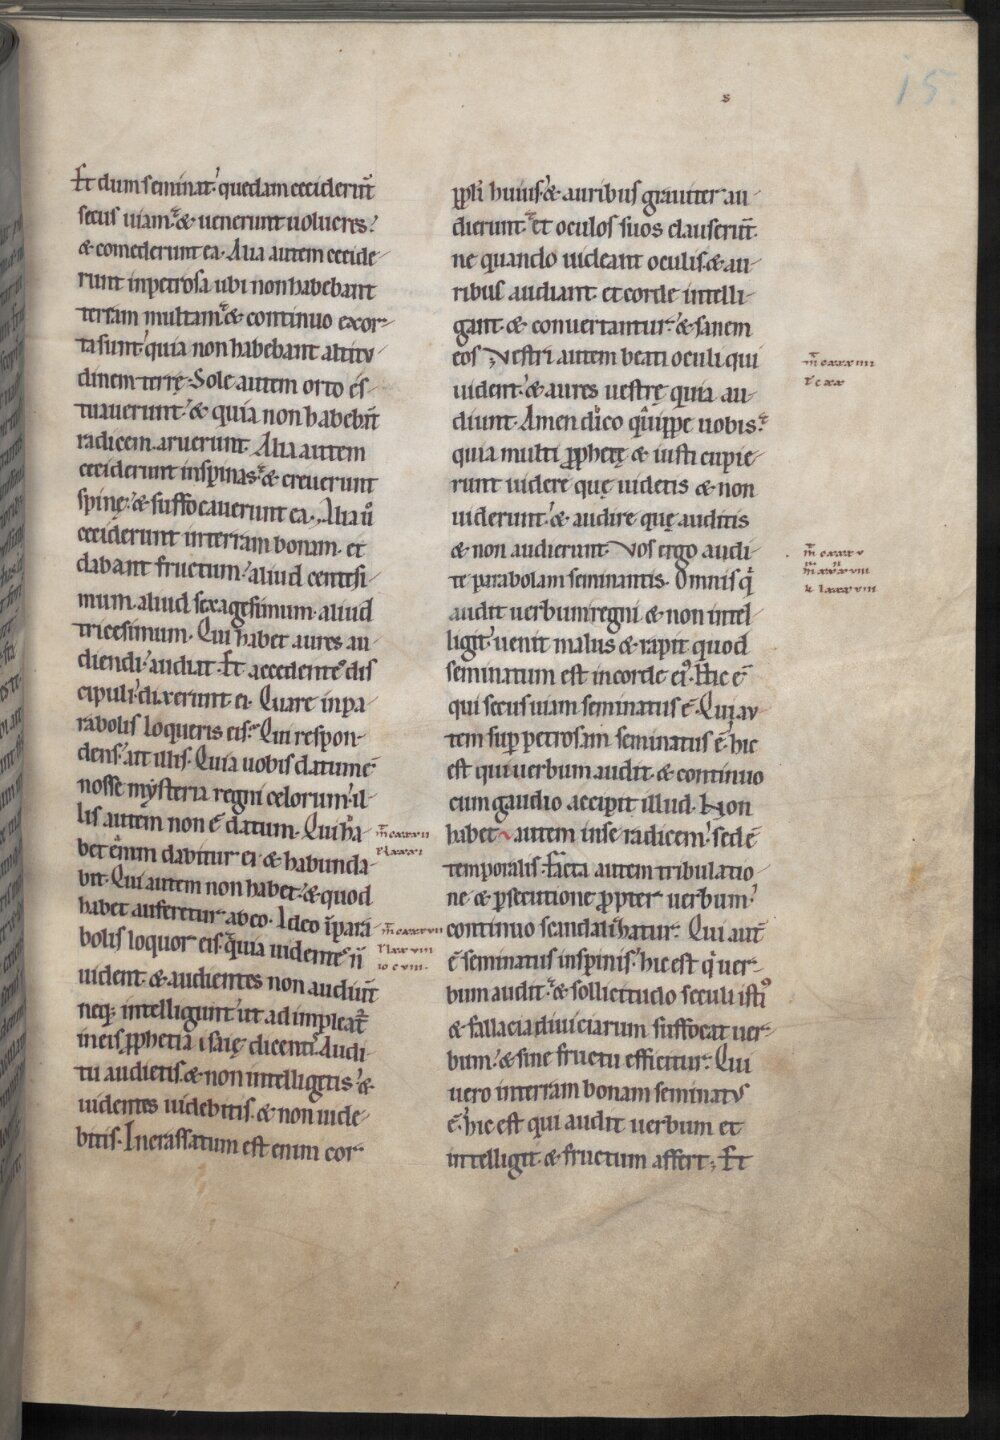 15.
s
Et dum seminat' quedam ceciderūt
secus uiam. & uenerunt uolucres.
& comederunt ea. Alia autem cecide-
runt inpetrosa ubi non habebant
terram multam. & continuo exor-
ta sunt quia non habebant altitu-
dinem terrę. Sole autem orto es-
tuauerunt. & quia non habebn̄t
radicem. aruerunt. Alia autem
ceciderunt inspinas. & creuerunt
spinę. & suffocauerunt ea. Alia ů
ceciderunt interram bonam. et
dabant fructum. aliud centesi-
mum. aliud sexagesimum. aliud
tricesimum. Qui habet aures au-
diendi. audiat. Et accedentes dis
cipuli. dixerunt ei. Quare in pa-
rabolis loqueris eis. Qui respon-
dens. ait illis. Quia uobis datum ē
nosse mysteria regni celorum. il-
lis autem non ē datum. Qui ha-
bet enim dabitur ei & habunda-
bit. Qui autem non habet. & quod
habet auferetur ab eo. Ideo ī para-
bolis loquor eis. quia uidentes ñ
uident. & audientes non audiūt
neq; intelligunt ut adimpleat̄
ineis ꝓphetia isaię dicentis. Audi-
tu audietis. & non intelligetis. &
uidentes uidebitis. & non uide-
bitis. Incrassatum est enim cor
ppli huius. & auribus grauiter au-
dierunt. et oculos suos clauserūt.
ne quando uideant oculis. & au-
ribus audiant. et corde intelli-
gant. & conuertantur. & sanem
eos. Vestri autem beati oculi qui
uident. & aures uestrę quia au-
diunt. Amen dico quippe uobis.
quia multi ꝓphetę & iusti cupie-
runt uidere quę uidetis & non
uiderunt. & audire quę auditis
& non audierunt. Vos ergo audi-
te parabolam seminantis. Omnis q
audit uerbum regni & non intel-
ligit. uenit malus & rapit quod
seminatum est incorde ei9. Hic ē
qui secus uiam seminatus ē. Qui au-
tem sup petrosam seminatus ē. hic
est qui uerbum audit. & continuo
cum gaudio accipit illud. Non
habet autem inse radicem. sed ē
temporalis. Facta autem tribulatio-
ne & ꝑsecutione ꝓpter uerbum.
continuo scandalizatur. Qui aut̄
ē seminatus inspinis. hic est q uer-
bum audit. & sollicitudo seculi isti9
& fallacia diuiciarum suffocat uer-
bum. & sine fructu efficitur. Qui
uero interram bonam seminatus
ē. hic est qui audit uerbum et
intelligit. & fructum affert. Et